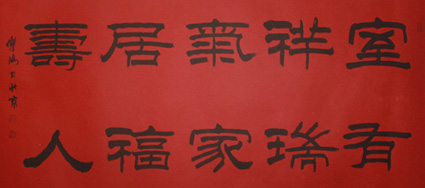 室有
祥瑞
氣家
居福
壽人